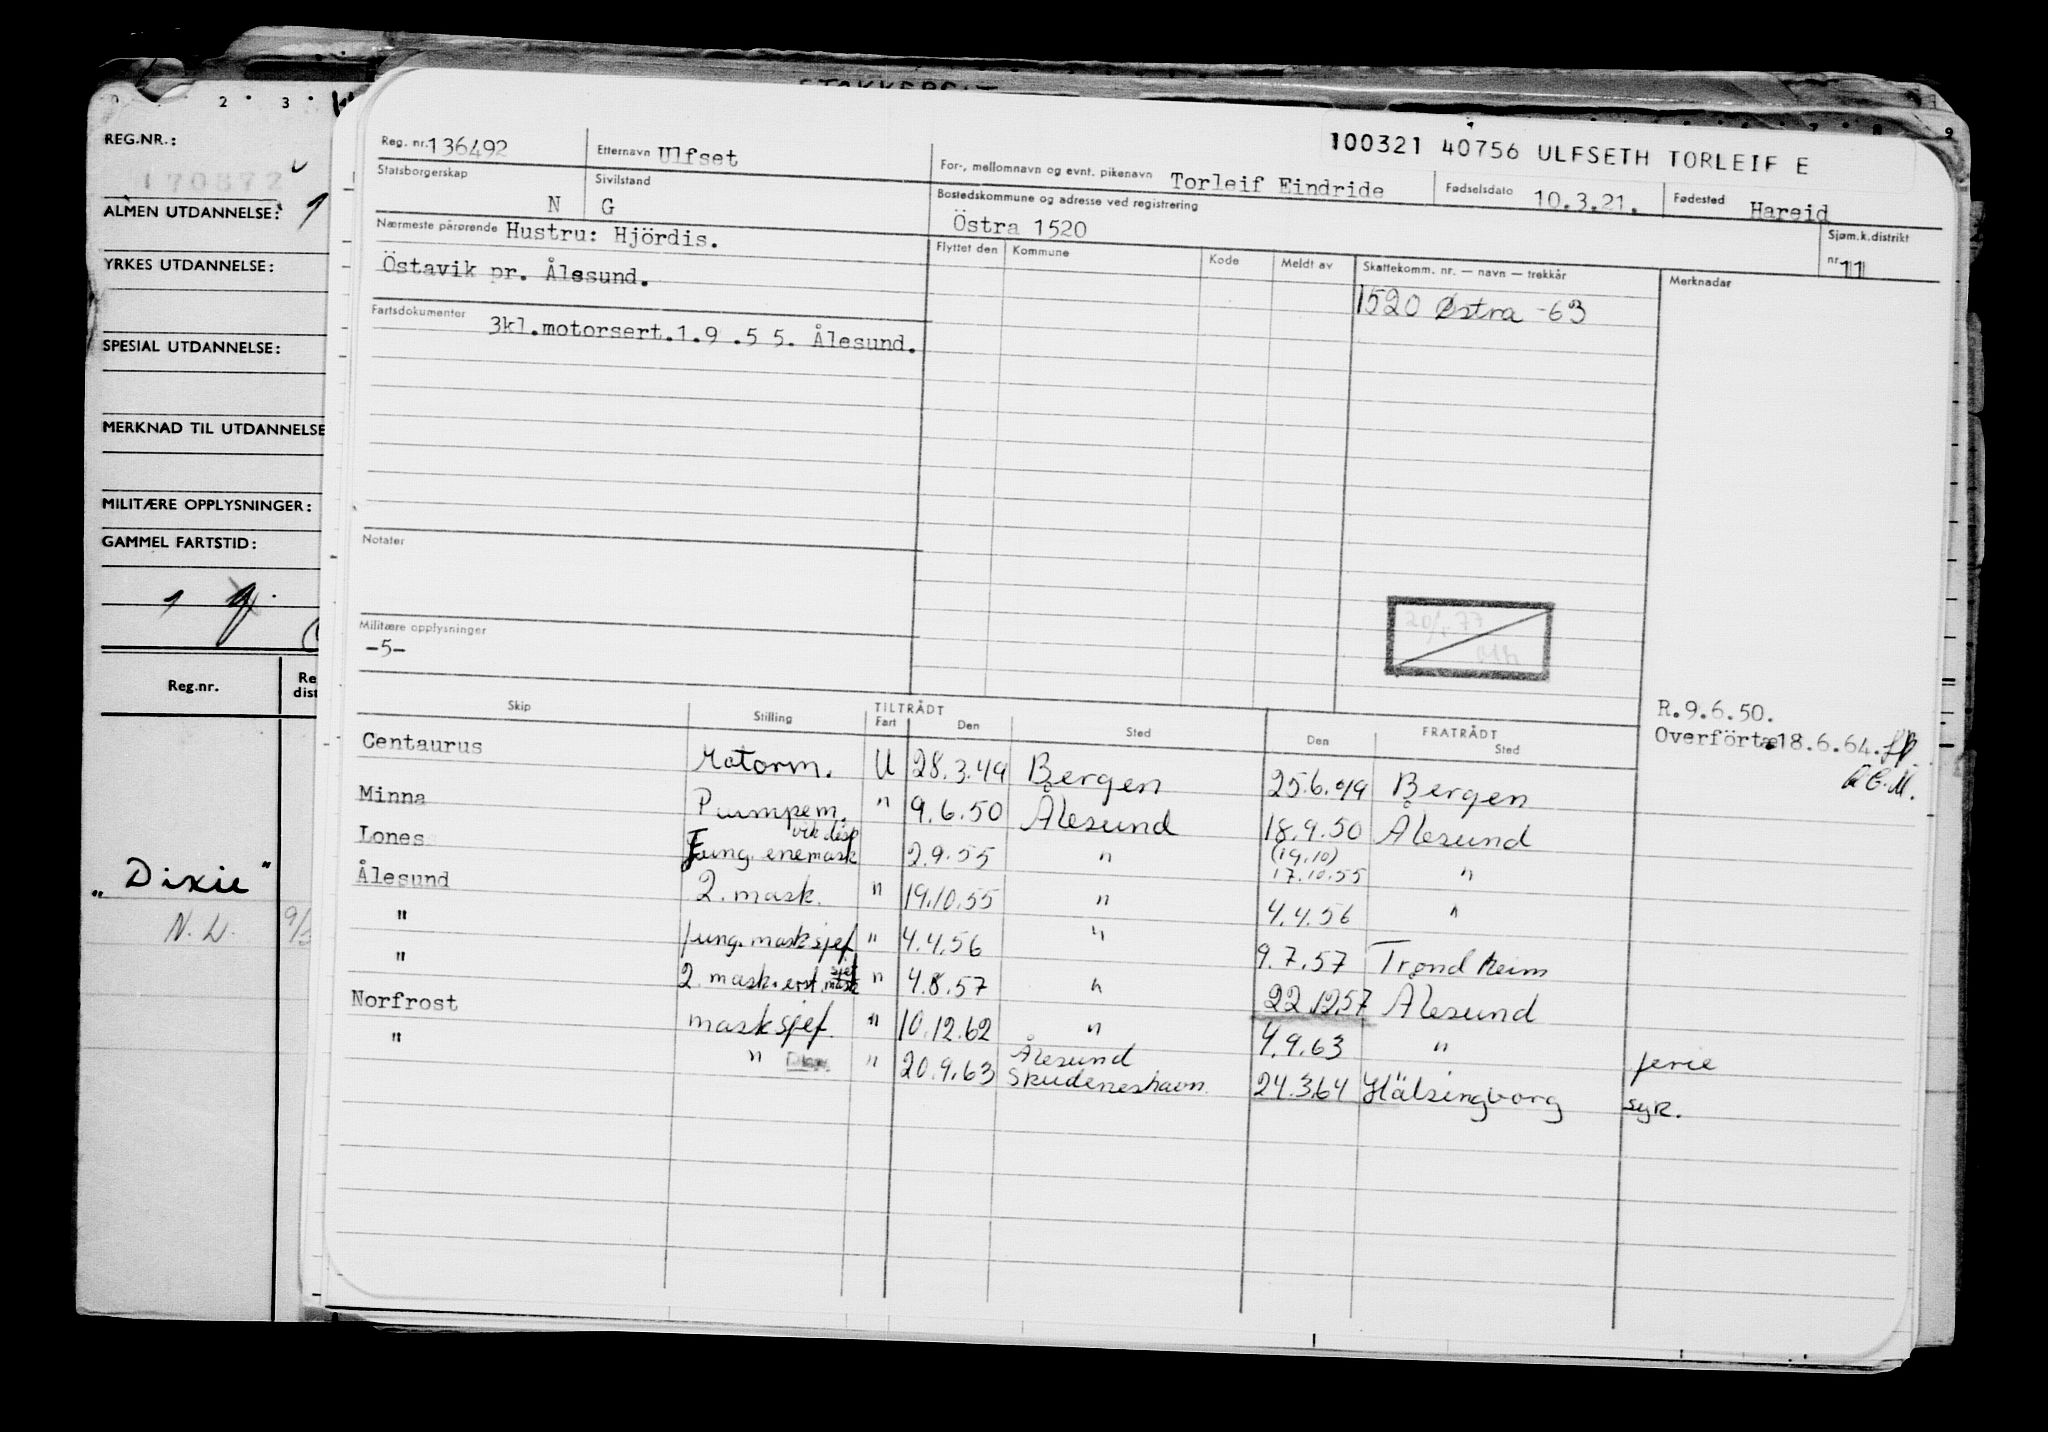 STAKKERSET
2 3
REG.NR.:
170872
ALMEN UTDANNELSE: 1
YRKES UTDANNELSE:
SPESIAL UTDANNELSE:
MERKNAD TIL UTDANNELSE
MILITÆRE OPPLYSNINGER:
GAMMEL FARTSTID:
Reg.nr. Re dist
„Dixie"
N.W.
100321 40756 ULFSETH TORLEIF E
Reg. nr. 136492 Etternavn Ulfset For-, mellomnavn og evnt. pikenavn Torleif Eindride Fødselsdato 10.3.21. Fødested Hareid
Statsborgerskap N Sivilstand G Bostedskommune og adresse ved registrering Östra 1520 Sjøm.k.distrikt nr. 11
Nærmeste pårørende Hustru: Hjördis. Flyttet den Kommune Kode Meldt av Skattekomm. nr. — navn — trekkår Merknader
Östavik pr. Ålesund. 1520 Østra -63
Fartsdokumenter 3kl.motorsert.1.9 .5 5. Ålesund.
Notater
20/1 77
Militære opplysninger
-5-
R.9.6.50.
Overført 18.6.64.
Skip Stilling TILTRÅDT Fart Den Sted Den FRATRÅDT Sted
Centaurus Motorm. U 28.3.49 Bergen 25.6.49 Bergen
Minna Pumpem. " 9.6.50 Ålesund 18.9.50 Ålesund
Lones Fung. enemask vik disp 2.9.55 " (19.10) 17.10.55 "
Ålesund 2. mask. " 19.10.55 " 4.4.56 "
" fung. masksjef. " 4.4.56 " 9.7.57 Trondheim
" 2. mask. " 4.8.57 " 22.12.57 Ålesund
Norfrost masksjef. " 10.12.62 " 4.9.63 " ferie
" " " 20.9.63 Ålesund Skudeneshavn. 24.3.64 Hälsingborg syk.